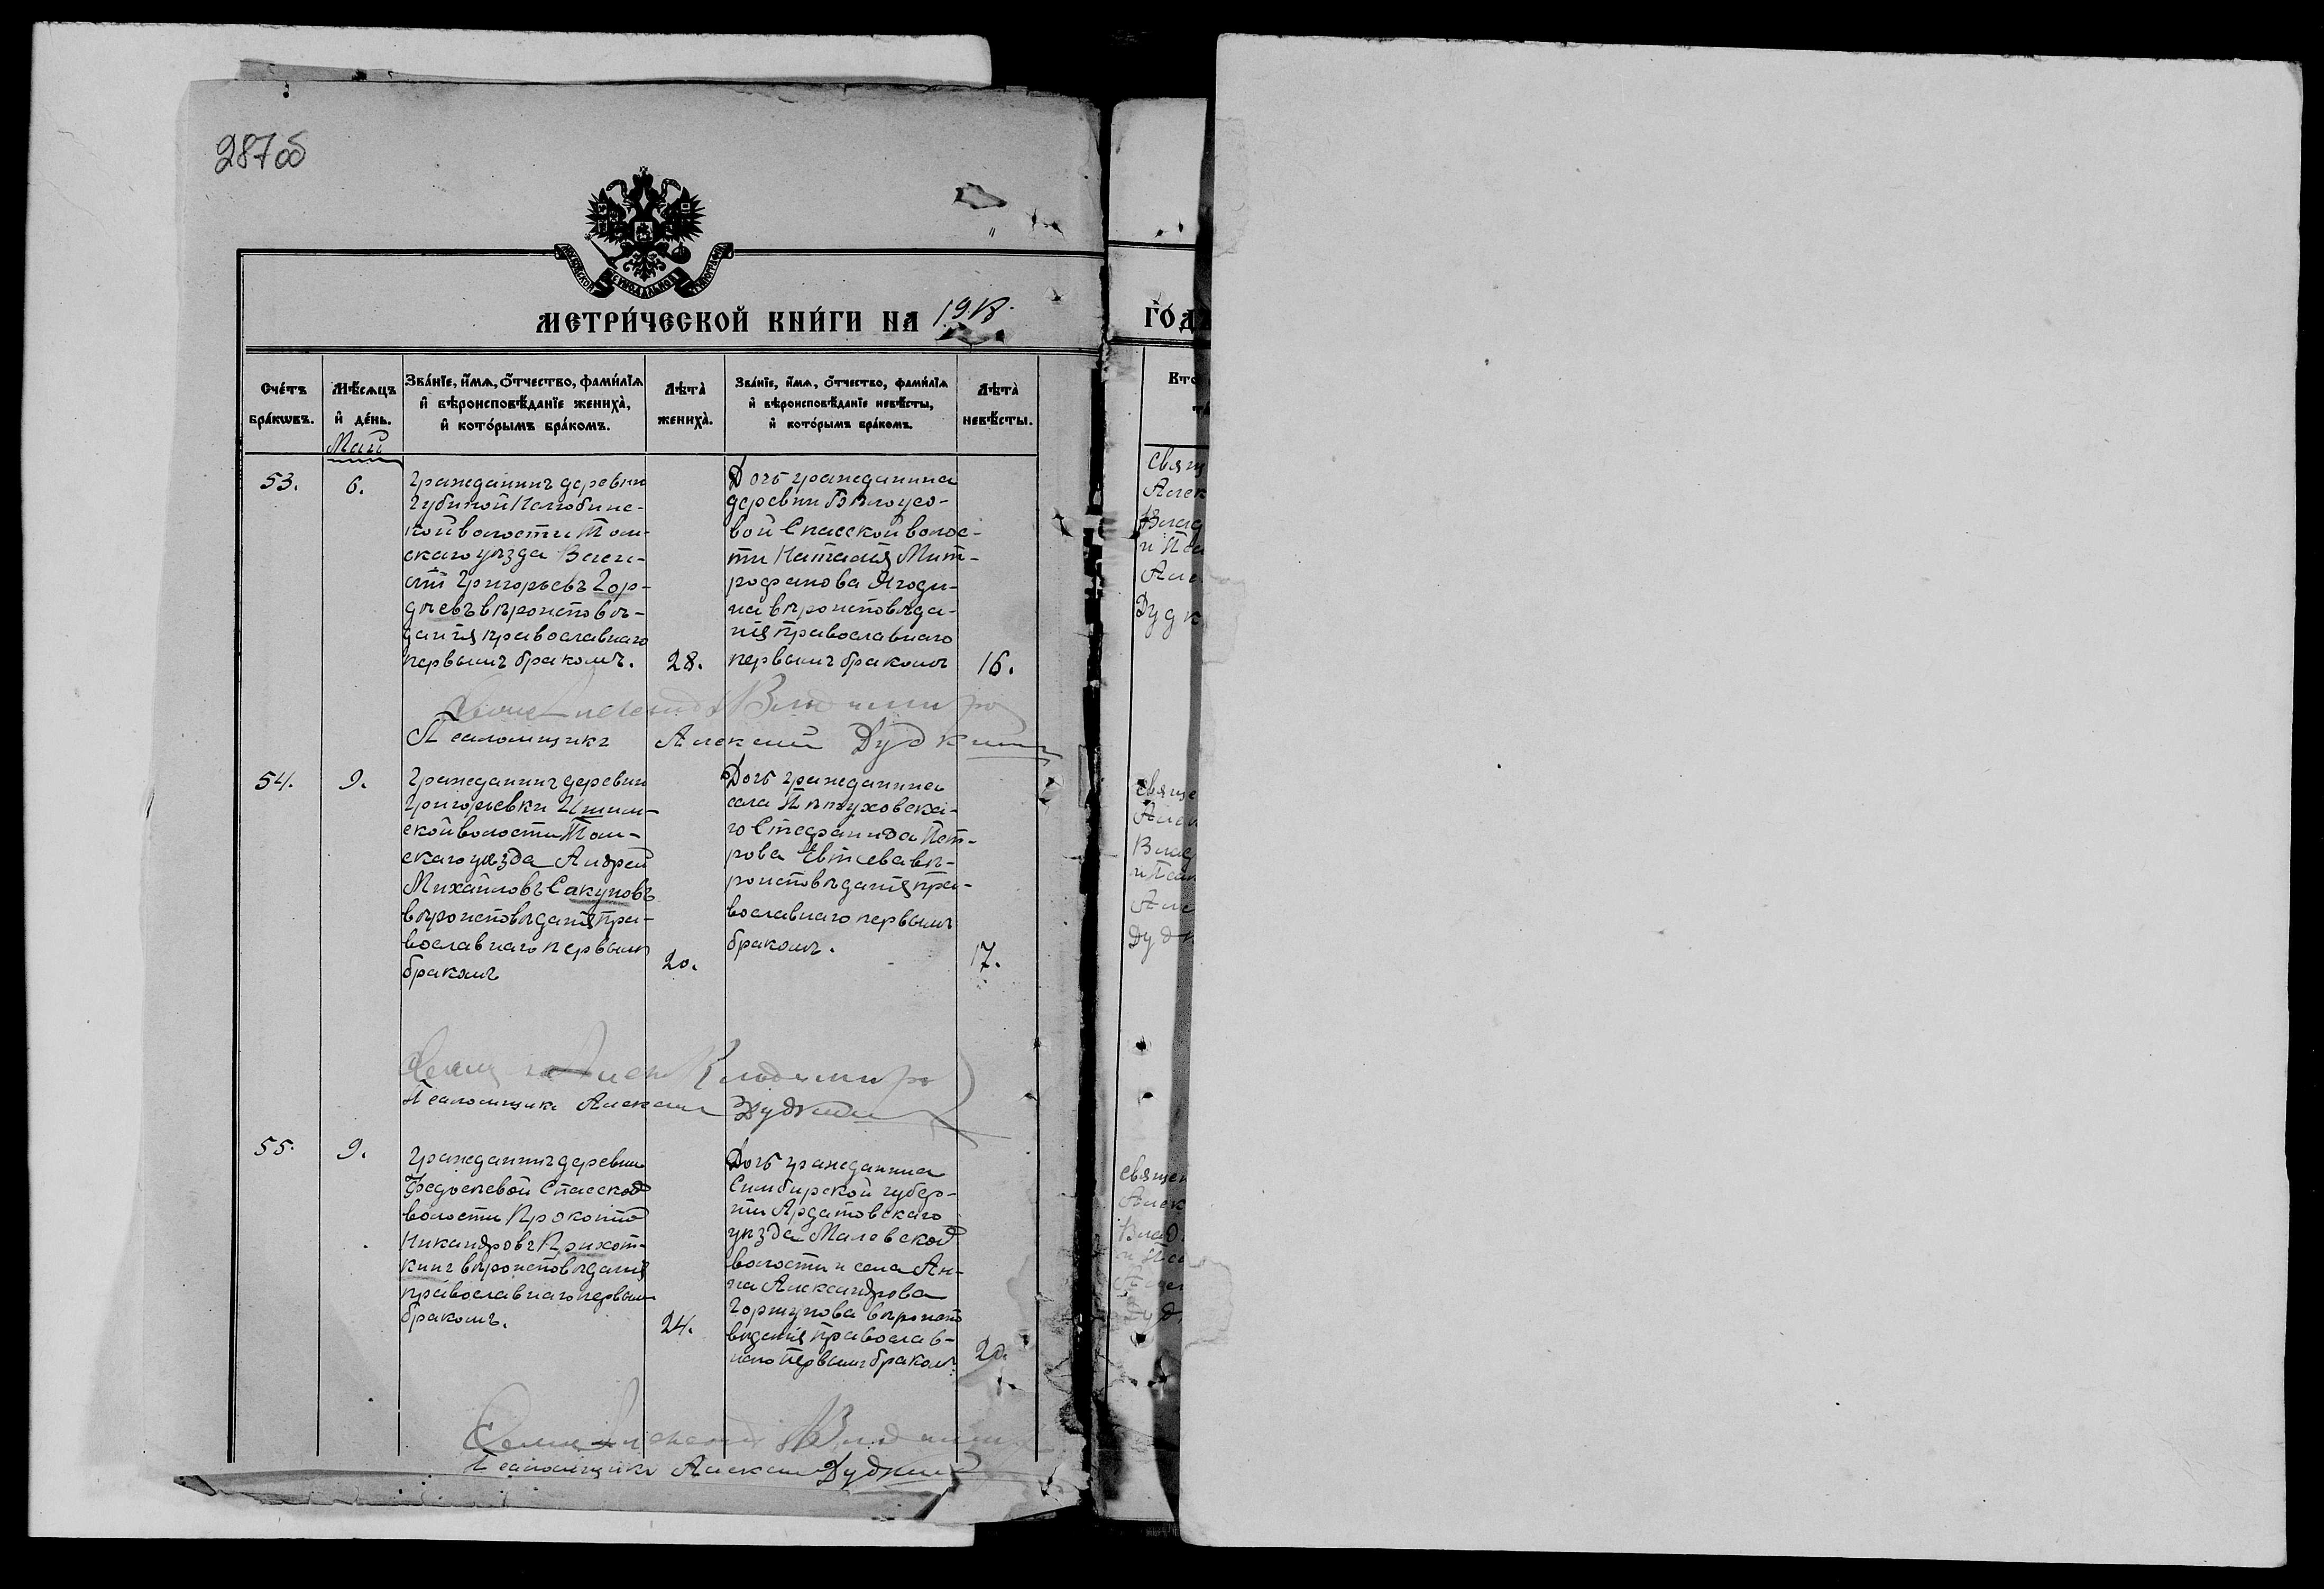 287об
МОСКОВСКОЙ СѴНОДАЛЬНОЙ ТИПОГРАФІИ
МЕТРИ́ЧЕСКОЙ КНИ́ГИ НА 1918.
ГО́Д
Сче́тъ бра́кѡвъ.
Мѣ́сѧцъ и҆ де́нь.
Зва́нїе, и҆́мѧ, ѻ҆́тчество, фами́лїѧ и҆ вѣроисповѣ́данїе жениха̀, и҆ кото́рымъ бра́комъ.
Лѣта̀ жениха̀.
Зва́нїе, и҆́мѧ, ѻ҆́тчество, фами́лїѧ и҆ вѣроисповѣ́данїе невѣ́сты, и҆ кото́рымъ бра́комъ.
Лѣта̀ невѣ́сты.
Май
53.
6.
Гражданинъ деревни
Губиной Нелюбинс-
кой волости Том-
скаго уѣзда
Григорьевъ Гор-
дѣевъ вѣроисповѣ-
данія православнаго
первымъ бракомъ.
28.
Дочь гражданина
деревни Бѣлоусо-
вой Спасской волос-
ти Наталія Мит-
рофанова Ягоди-
на вѣроисповѣда-
нія православнаго
первымъ бракомъ
16.
Псаломщикъ Алексѣй Дудкинъ
54.
9.
Гражданинъ деревни
Григорьевки Ишим-
ской волости Том-
скаго уѣзда Андрей
Михайловъ Сакуновъ
вѣроисповѣданія пра-
вославнаго первымъ
бракомъ
20.
Дочь гражданина
села Пѣтуховска-
го Стефанида Пет-
рова вѣ-
роисповѣданія пра-
вославнаго первымъ
бракомъ.
17.
Псаломщикъ Алексѣй Дудкинъ
55.
9.
Гражданинъ деревни
Федосѣевой Спасской
волости Прокопій
Никандровъ Прихот-
кинъ вѣроисповѣданія
православнаго первымъ
бракомъ.
24.
Дочь гражданина
Симбирской губер-
ніи Ардатовскаго
уѣзда Малевской
волости и села Ан-
на Александрова
Горшунова вѣроиспо
вѣданія православ-
наго первымъ бракомъ.
20.
Псаломщикъ Алексѣй Дудкинъ